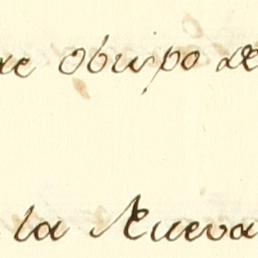 de obispo de
la Nueva